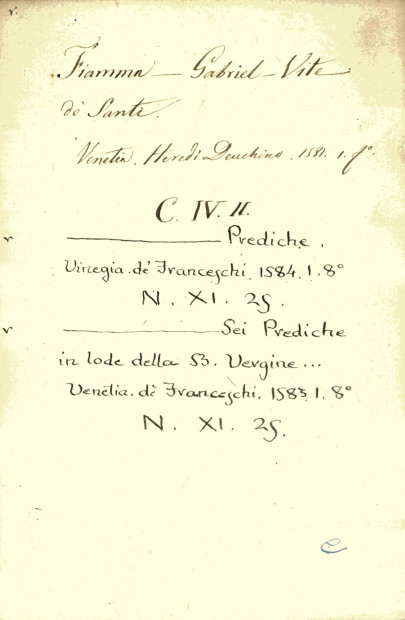 Fiamma — Gabriel — Vite
de' Santi.
Venetia. Heredi Deuchino. 1581. 1. f°.
C. IV. 11.
———— Prediche.
Vinegia. de' Franceschi. 1584. 1. 8°
N. XI. 25.
———— Sei Prediche
in lode della B. Vergine ...
Venetia. de' Franceschi. 1585. 1. 8°
N. XI. 25.